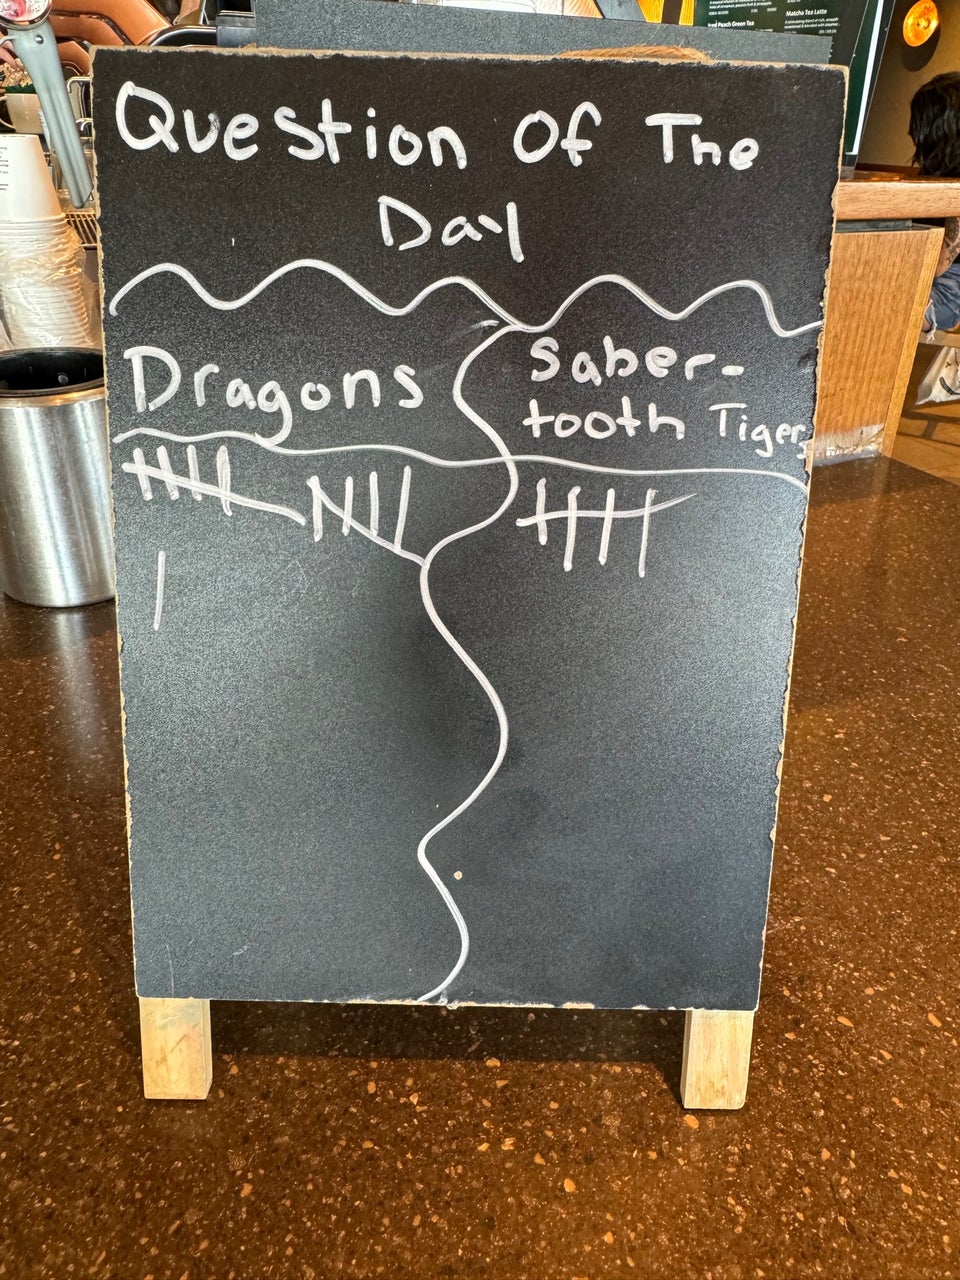 Question Of The
Day
Dragons
Saber-
tooth Tigers
Matcha Tea Latte
Peach Green Tea